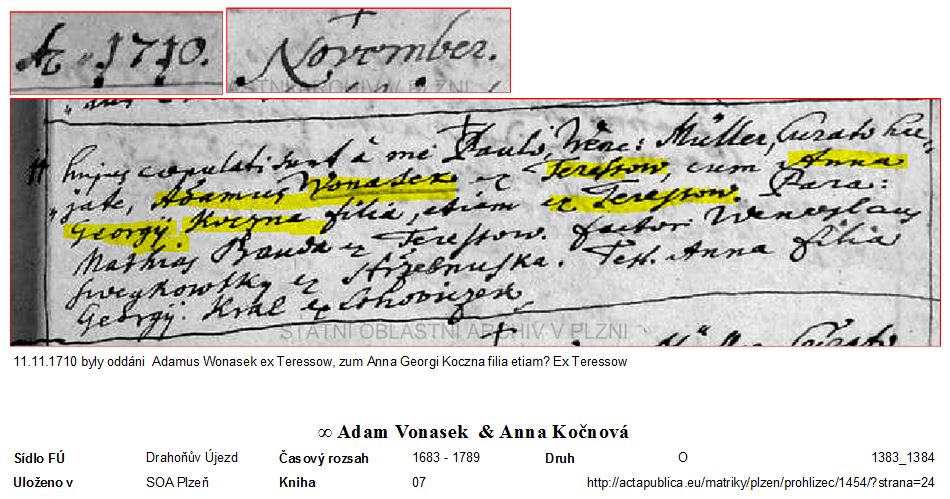 Aᵒ 1710.
November.
11 hujus copulati sunt à me Paulo Wenc: Müller, Curato hu„
„jate, Adamus Wonasek ex Teressow, cum Anna
Georgÿ Koczna filia, etiam ex Teressow. Para:
Mathias Bauda ex Teressow. factor Wenceslaus
Sweykowsky ex Strzebnuska. Test. Anna filia
Georgÿ Kral ex Lohowiczek.
STÁTNÍ OBLASTNÍ ARCHIV V PLZNI
11.11.1710 byly oddáni Adamus Wonasek ex Teressow, zum Anna Georgi Koczna filia etiam? Ex Teressow
∞ Adam Vonasek & Anna Kočnová
Sídlo FÚ Drahoňův Újezd Časový rozsah 1683 - 1789 Druh O 1383_1384
Uloženo v SOA Plzeň Kniha 07 http://actapublica.eu/matriky/plzen/prohlizec/1454/?strana=24